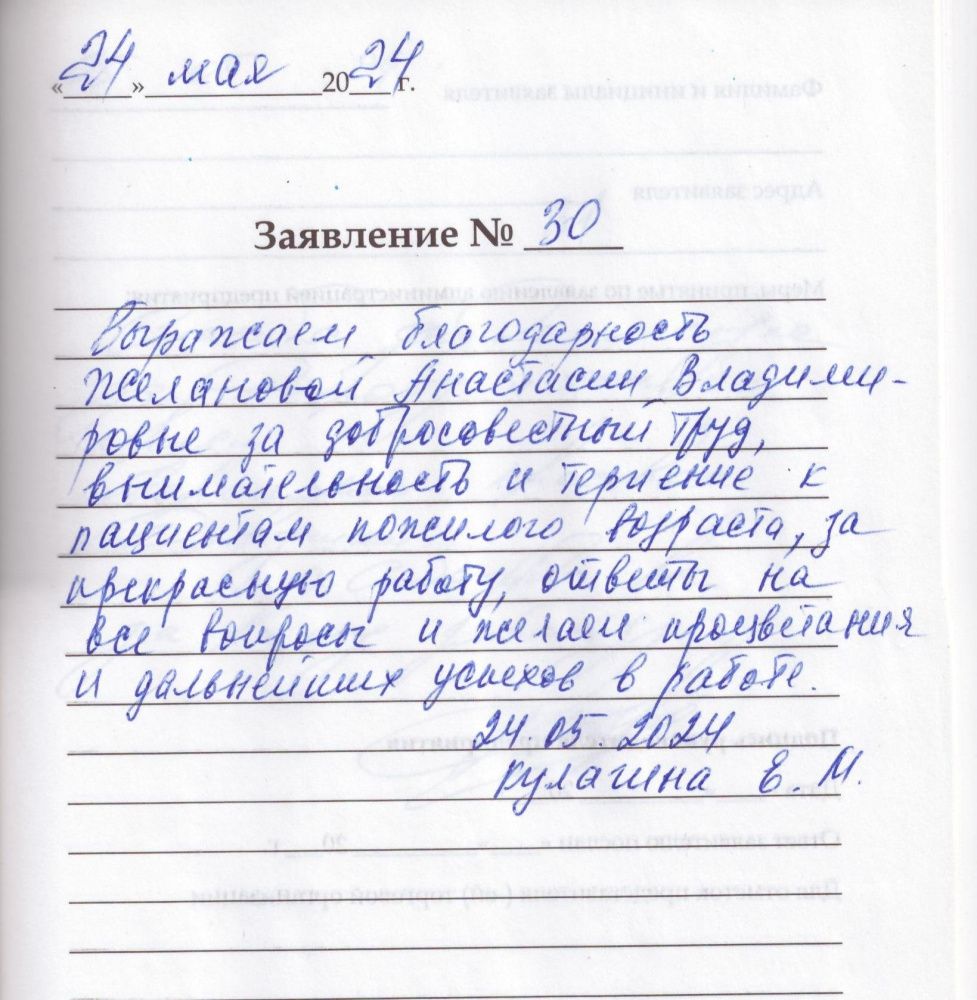 «24» мая 2024 г.
Заявление № 30
Выражаем благодарность
Желановой Анастасии Владими-
ровне за добросовестный труд,
внимательность и терпение к
пациентам пожилого возраста, за
прекрасную работу, ответы на
все вопросы и желаем процветания
и дальнейших успехов в работе.
24.05.2024
Кулагина Е. М.